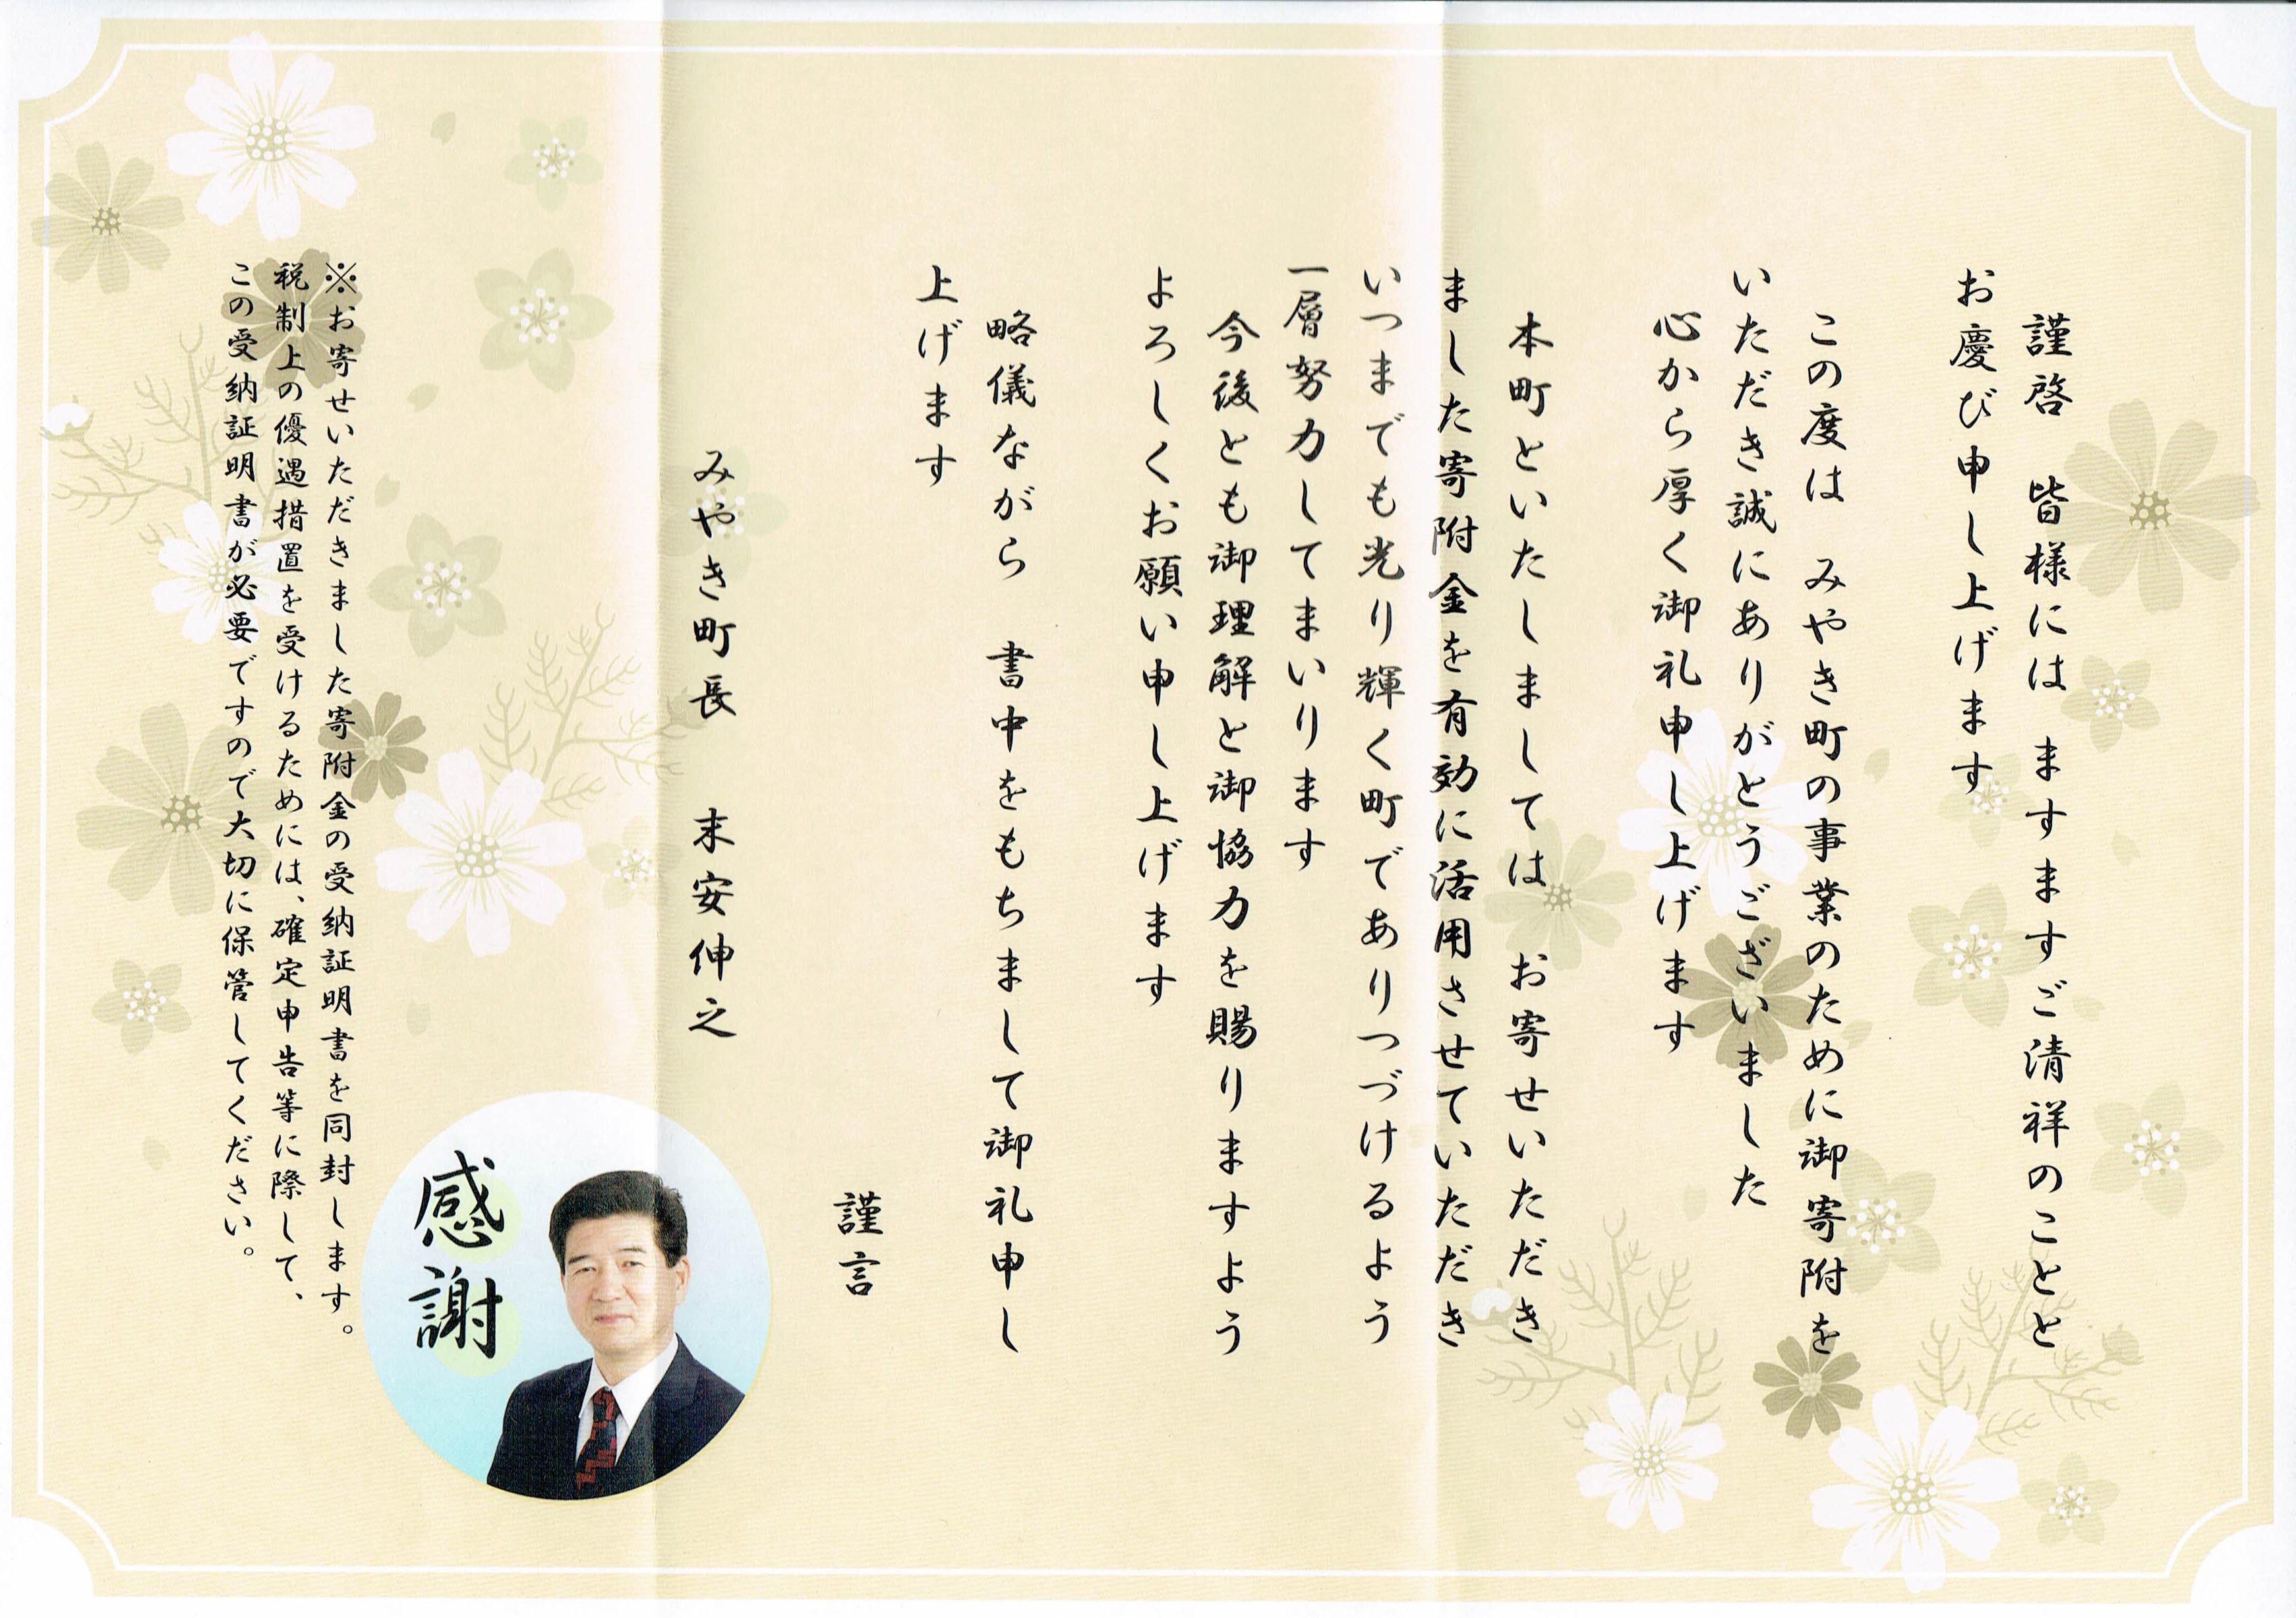 謹啓　皆様には　ますますご清祥のことと
お慶び申し上げます
この度は　みやき町の事業のために御寄附を
いただき誠にありがとうございました
心から厚く御礼申し上げます
本町といたしましては　お寄せいただき
ました寄附金を有効に活用させていただき
いつまでも光り輝く町でありつづけるよう
一層努力してまいります
今後とも御理解と御協力を賜りますよう
よろしくお願い申し上げます
略儀ながら　書中をもちまして御礼申し
上げます
謹言
みやき町長　末安伸之
感謝
※お寄せいただきました寄附金の受納証明書を同封します。
税制上の優遇措置を受けるためには、確定申告等に際して、
この受納証明書が必要ですので大切に保管してください。